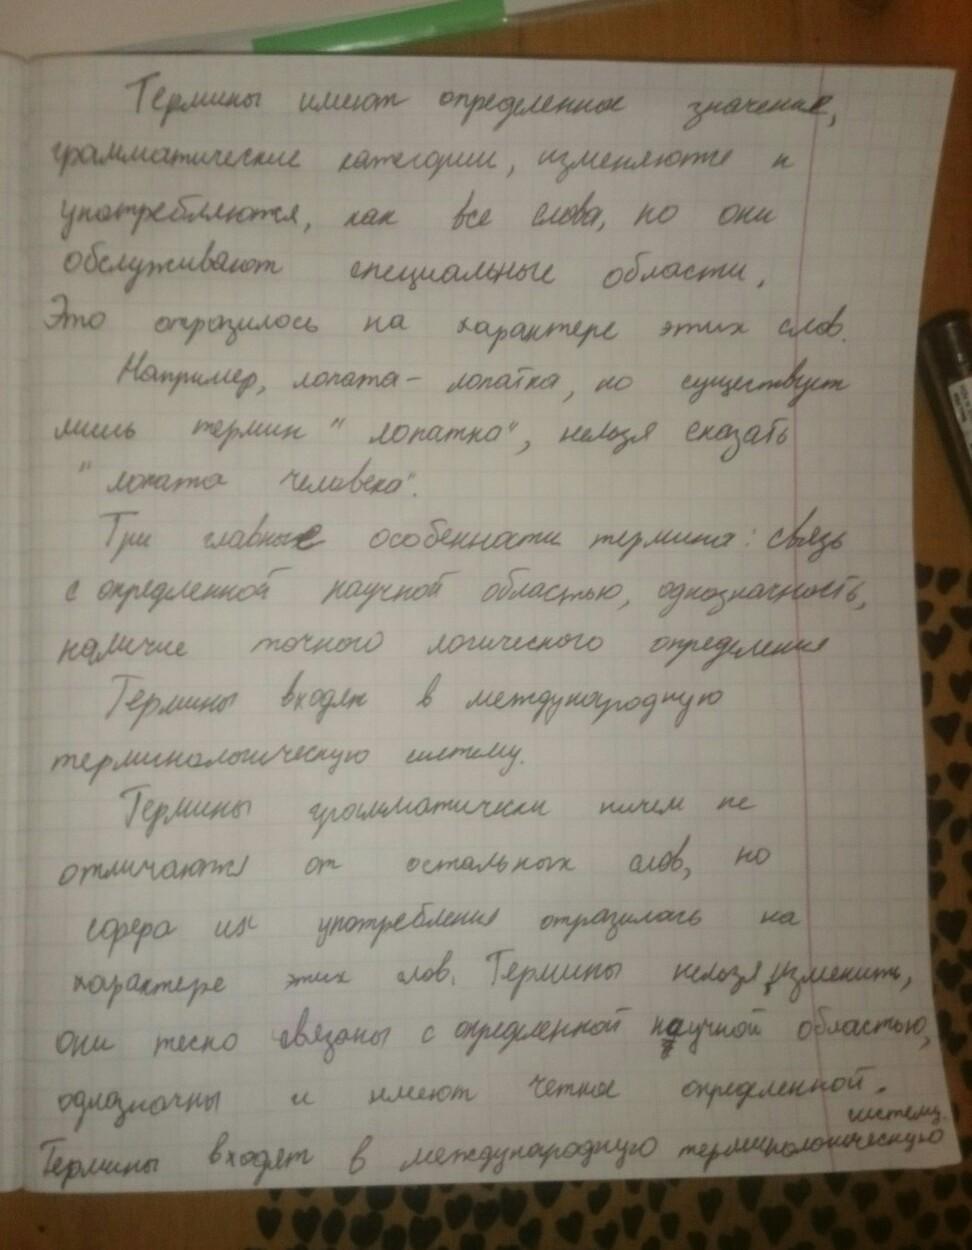 Термины имеют определенное значение,
грамматические категории, изменяются и
употребляются, как все слова, но они
обслуживают специальные области.
Это отразилось на характере этих слов.
Например, лопата - лопатка, но существует
лишь термин "лопатка", нельзя сказать
"лопата человека".
Три главные особенности термина: связь
с определенной научной областью, однозначность,
наличие точного логического определения
Термины входят в международную
терминологическую систему.
Термины грамматически ничем не
отличаются от остальных слов, но
сфера их употребления отразилась на
характере этих слов. Термины нельзя изменить,
они тесно связаны с определенной научной областью,
однозначны и имеют четкое определенной.
Термины входят в международную терминологическую
систему.